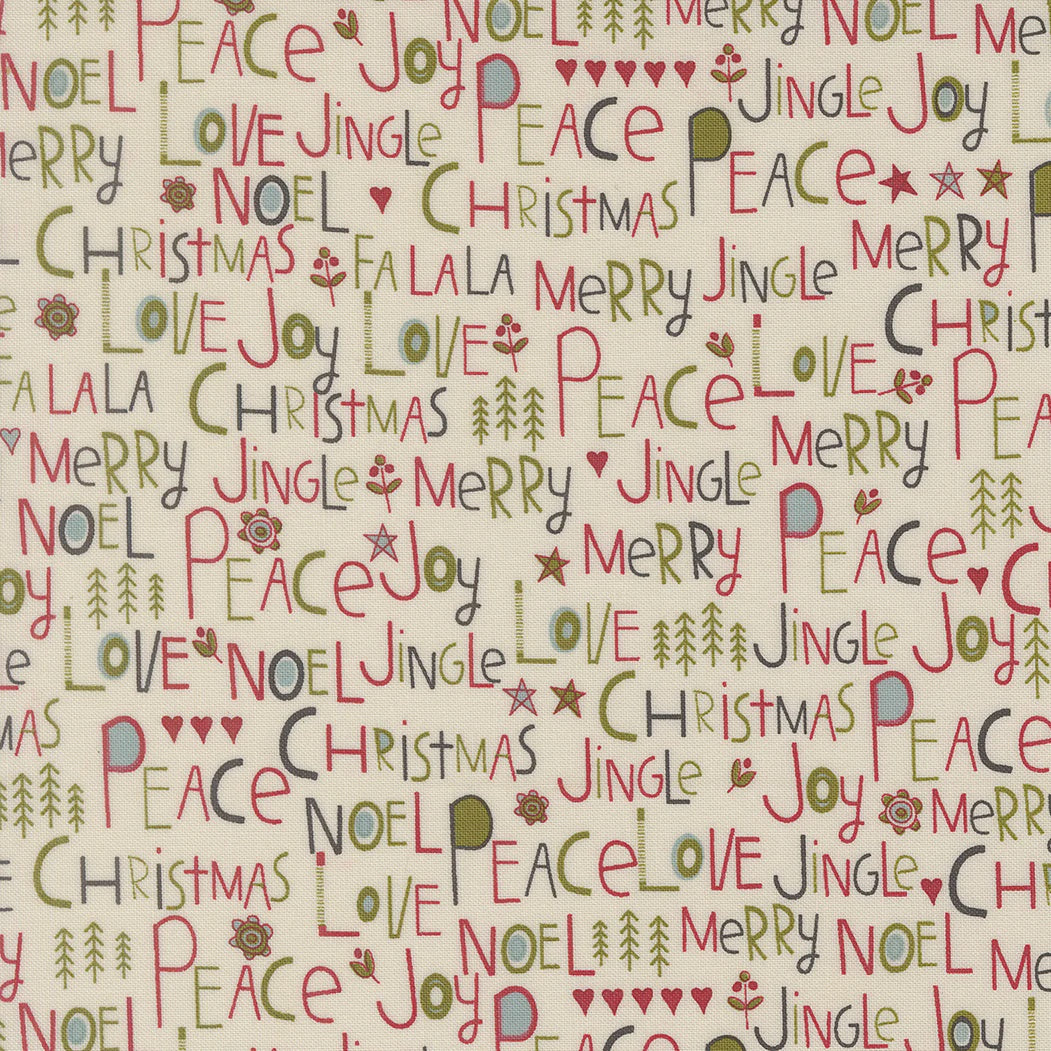 PEACE JOY NOEL MERRY NOEL Me
NOEL LOVE JINGLE PEACE JINGLE JOY L
MERRY NOEL CHRISTMAS PEACE
L CHRISTMAS FALALALA MERRY JINGLE MERRY
e LOVE JOY LOVE PEACE LOVE CHRIST
FALALALA CHRISTMAS MERRY PEA
MERRY JINGLE MERRY JINGLE
NOEL PEACE JOY MERRY PEACE C
OY LOVE NOEL JINGLE LOVE JINGLE JOY
LE CHRISTMAS PEACE
MAS PEACE CHRISTMAS JINGLE JOY MERRY
CHRISTMAS NOEL PEACE LOVE JINGLE CHR
LOVE NOEL MERRY NOEL Me
Y PEACE JOY
NOEL PEACE JINGLE JOY